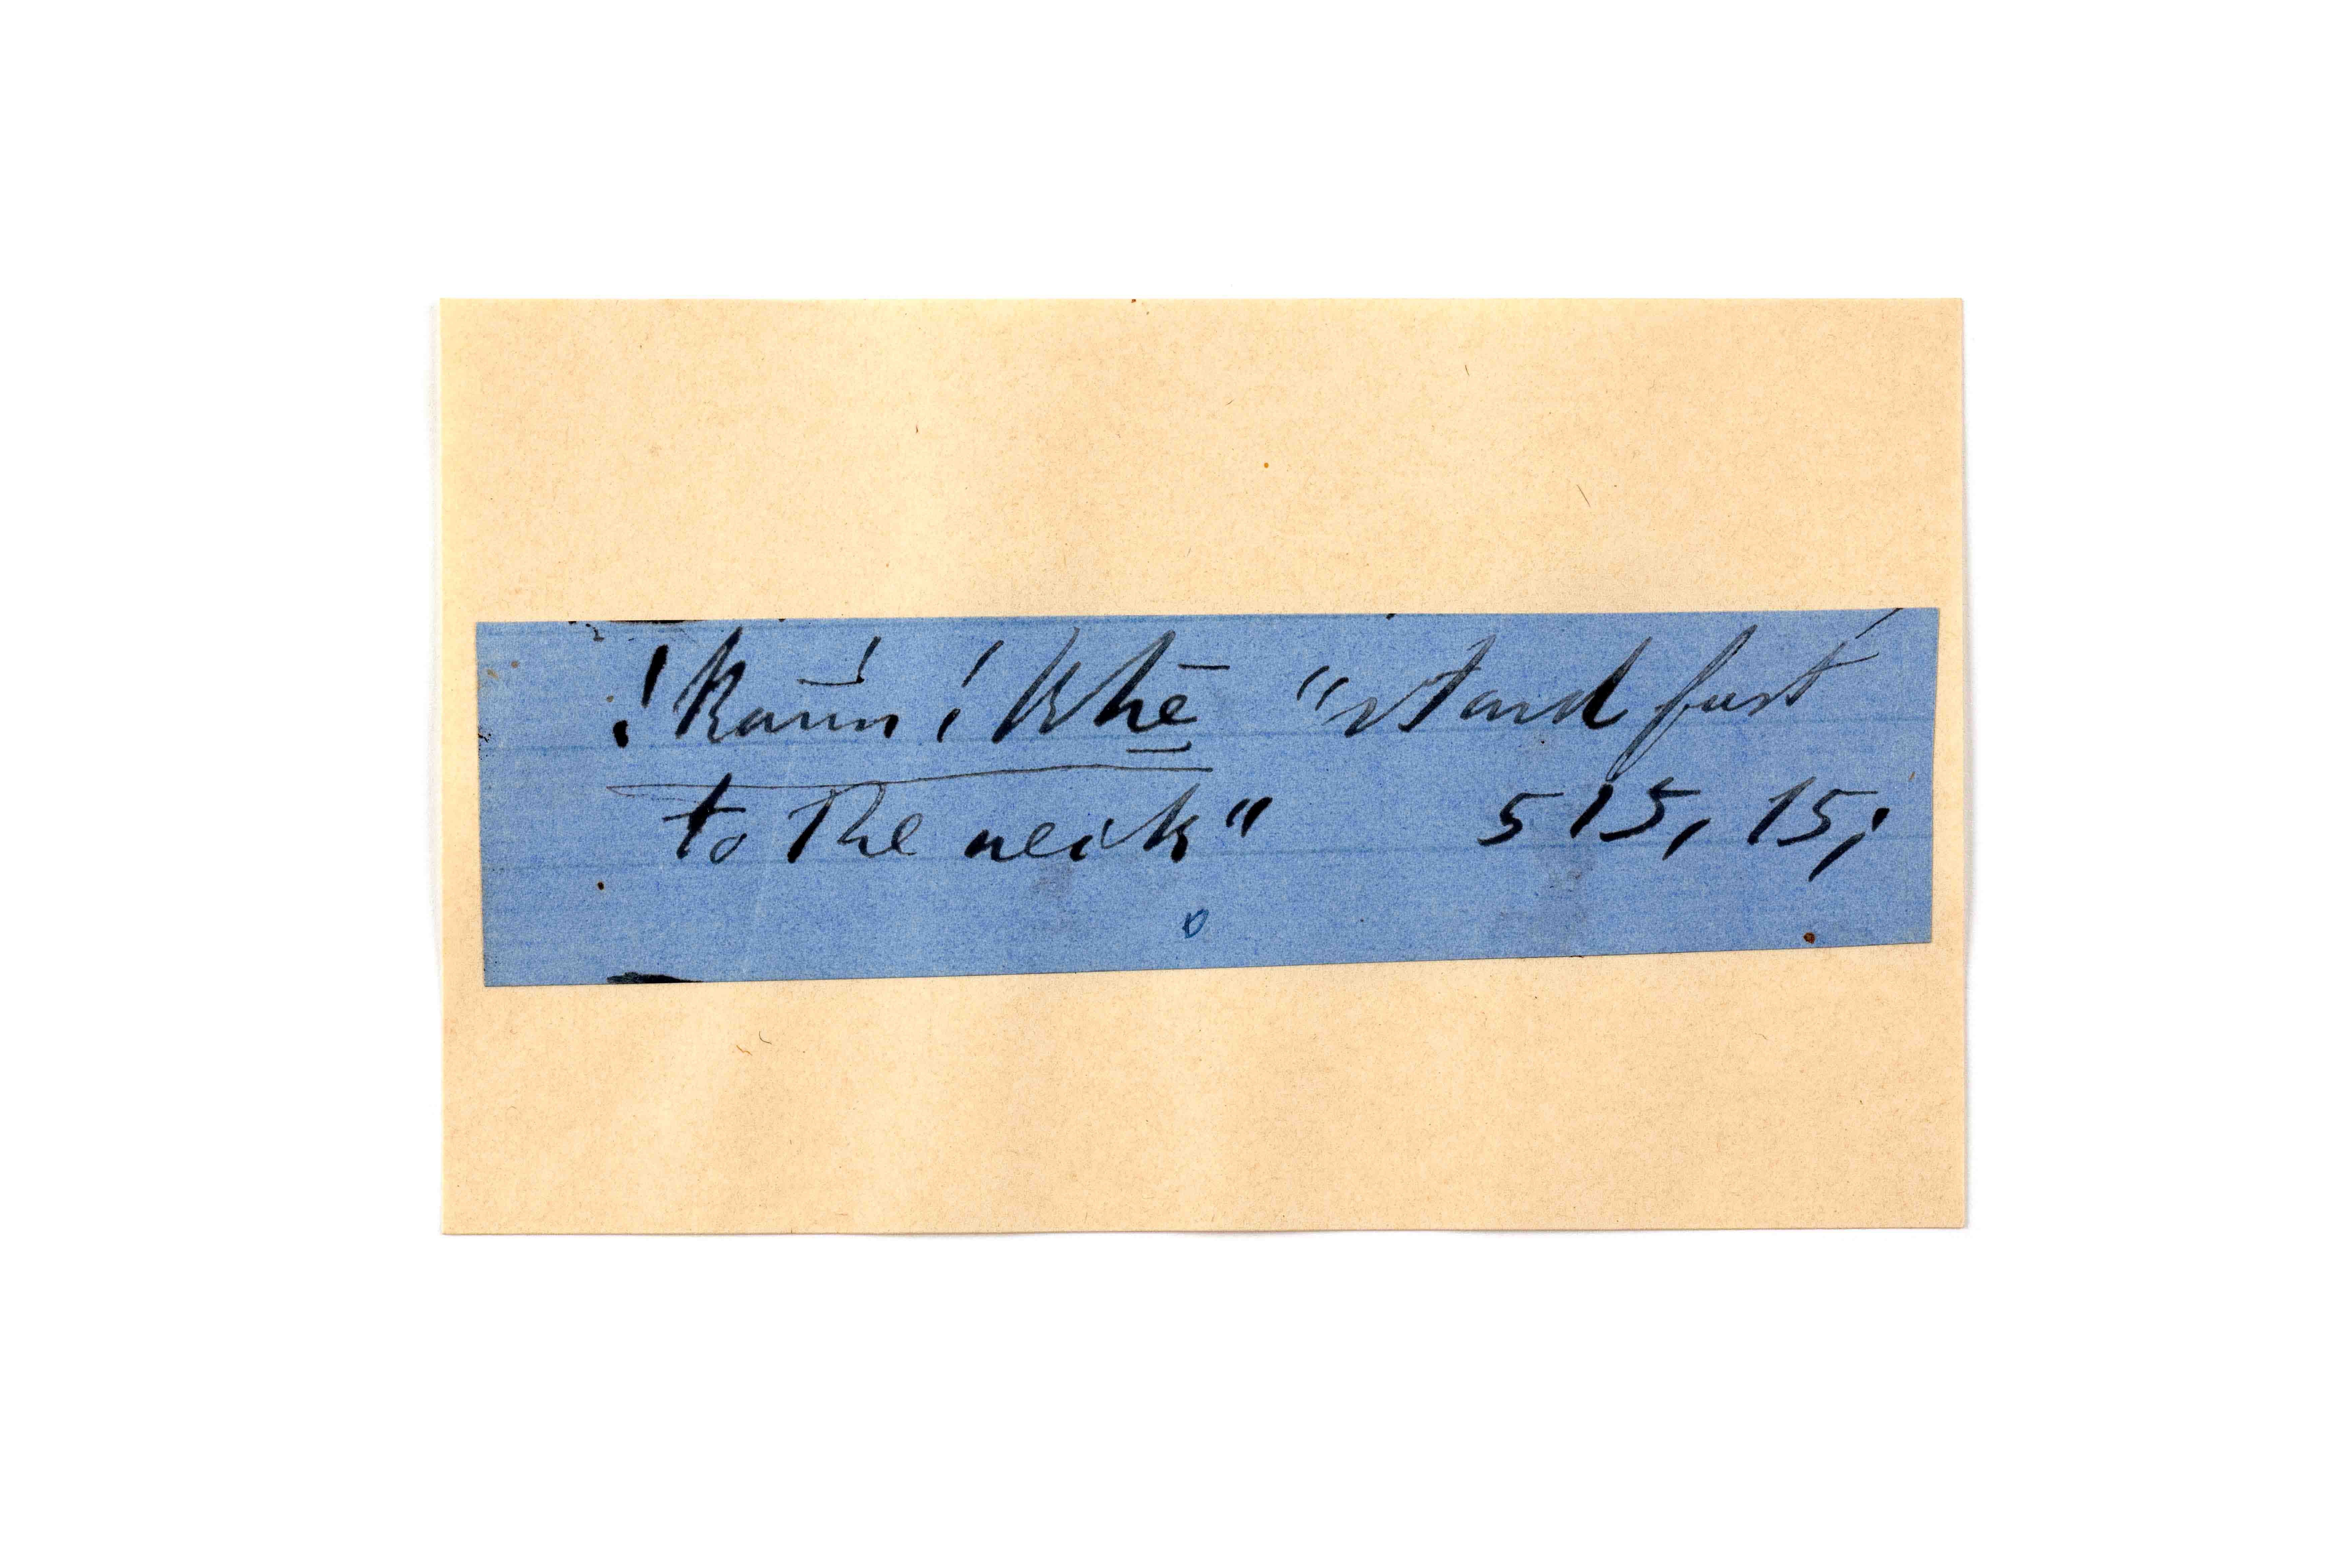 !kaū́n !khē̱ "stand fast
to the neck" 515, 15;